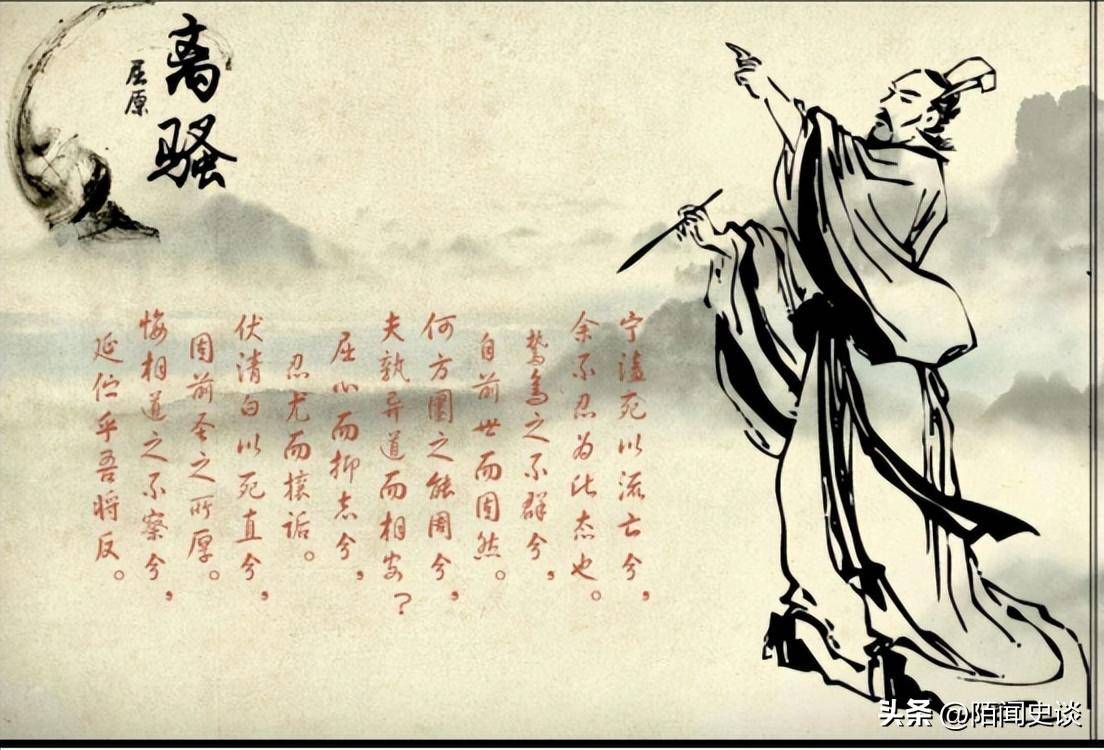 离骚
屈原
宁溘死以流亡兮，
余不忍为此态也。
鸷鸟之不群兮，
自前世而固然。
何方圜之能周兮，
夫孰异道而相安？
屈心而抑志兮，
忍尤而攘诟。
伏清白以死直兮，
固前圣之所厚。
悔相道之不察兮，
延伫乎吾将反。
头条 @陌闻史谈